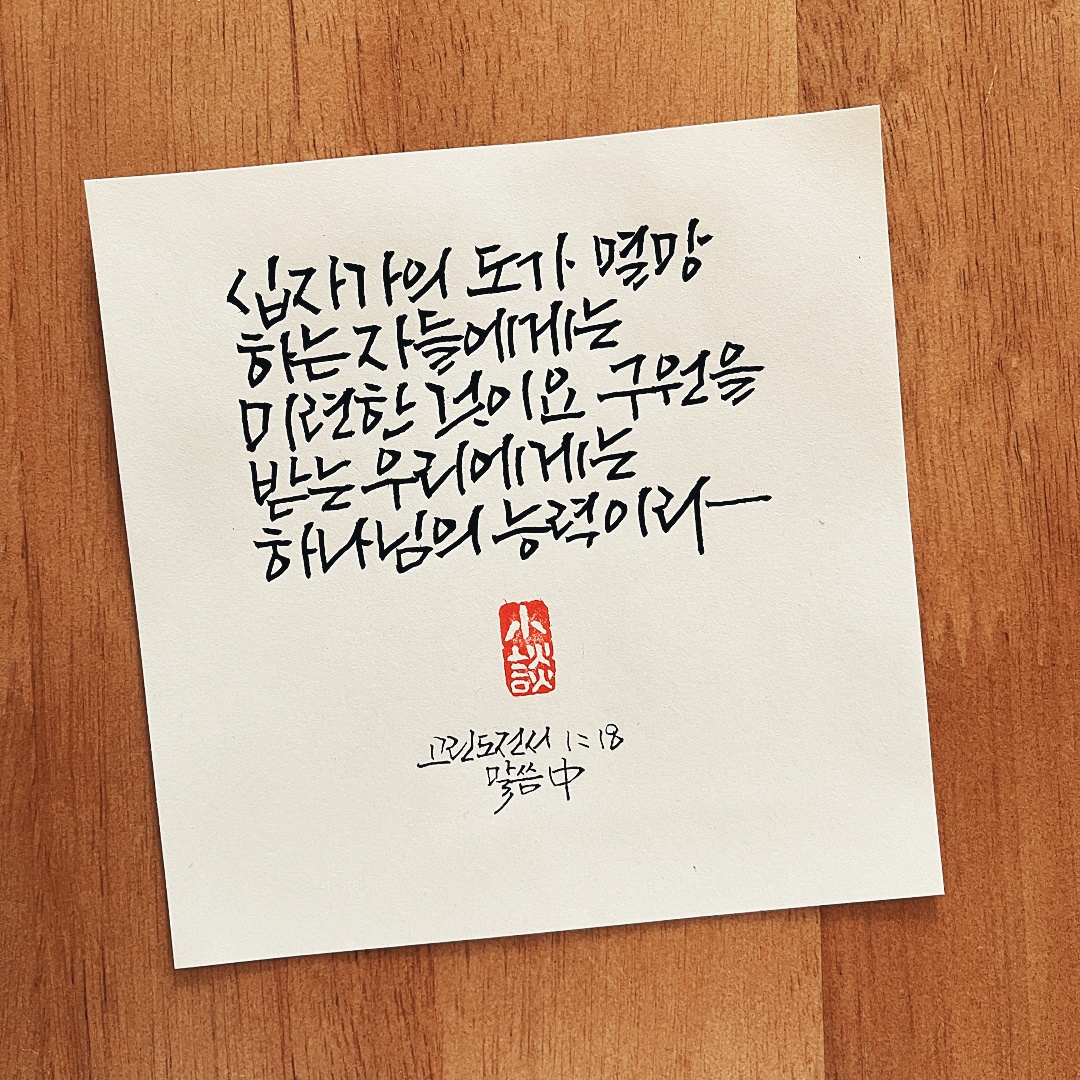 십자가의 도가 멸망
하는 자들에게는
미련한 것이요 구원을
받는 우리에게는
하나님의 능력이라
小
談
고린도전서 1:18
말씀 中